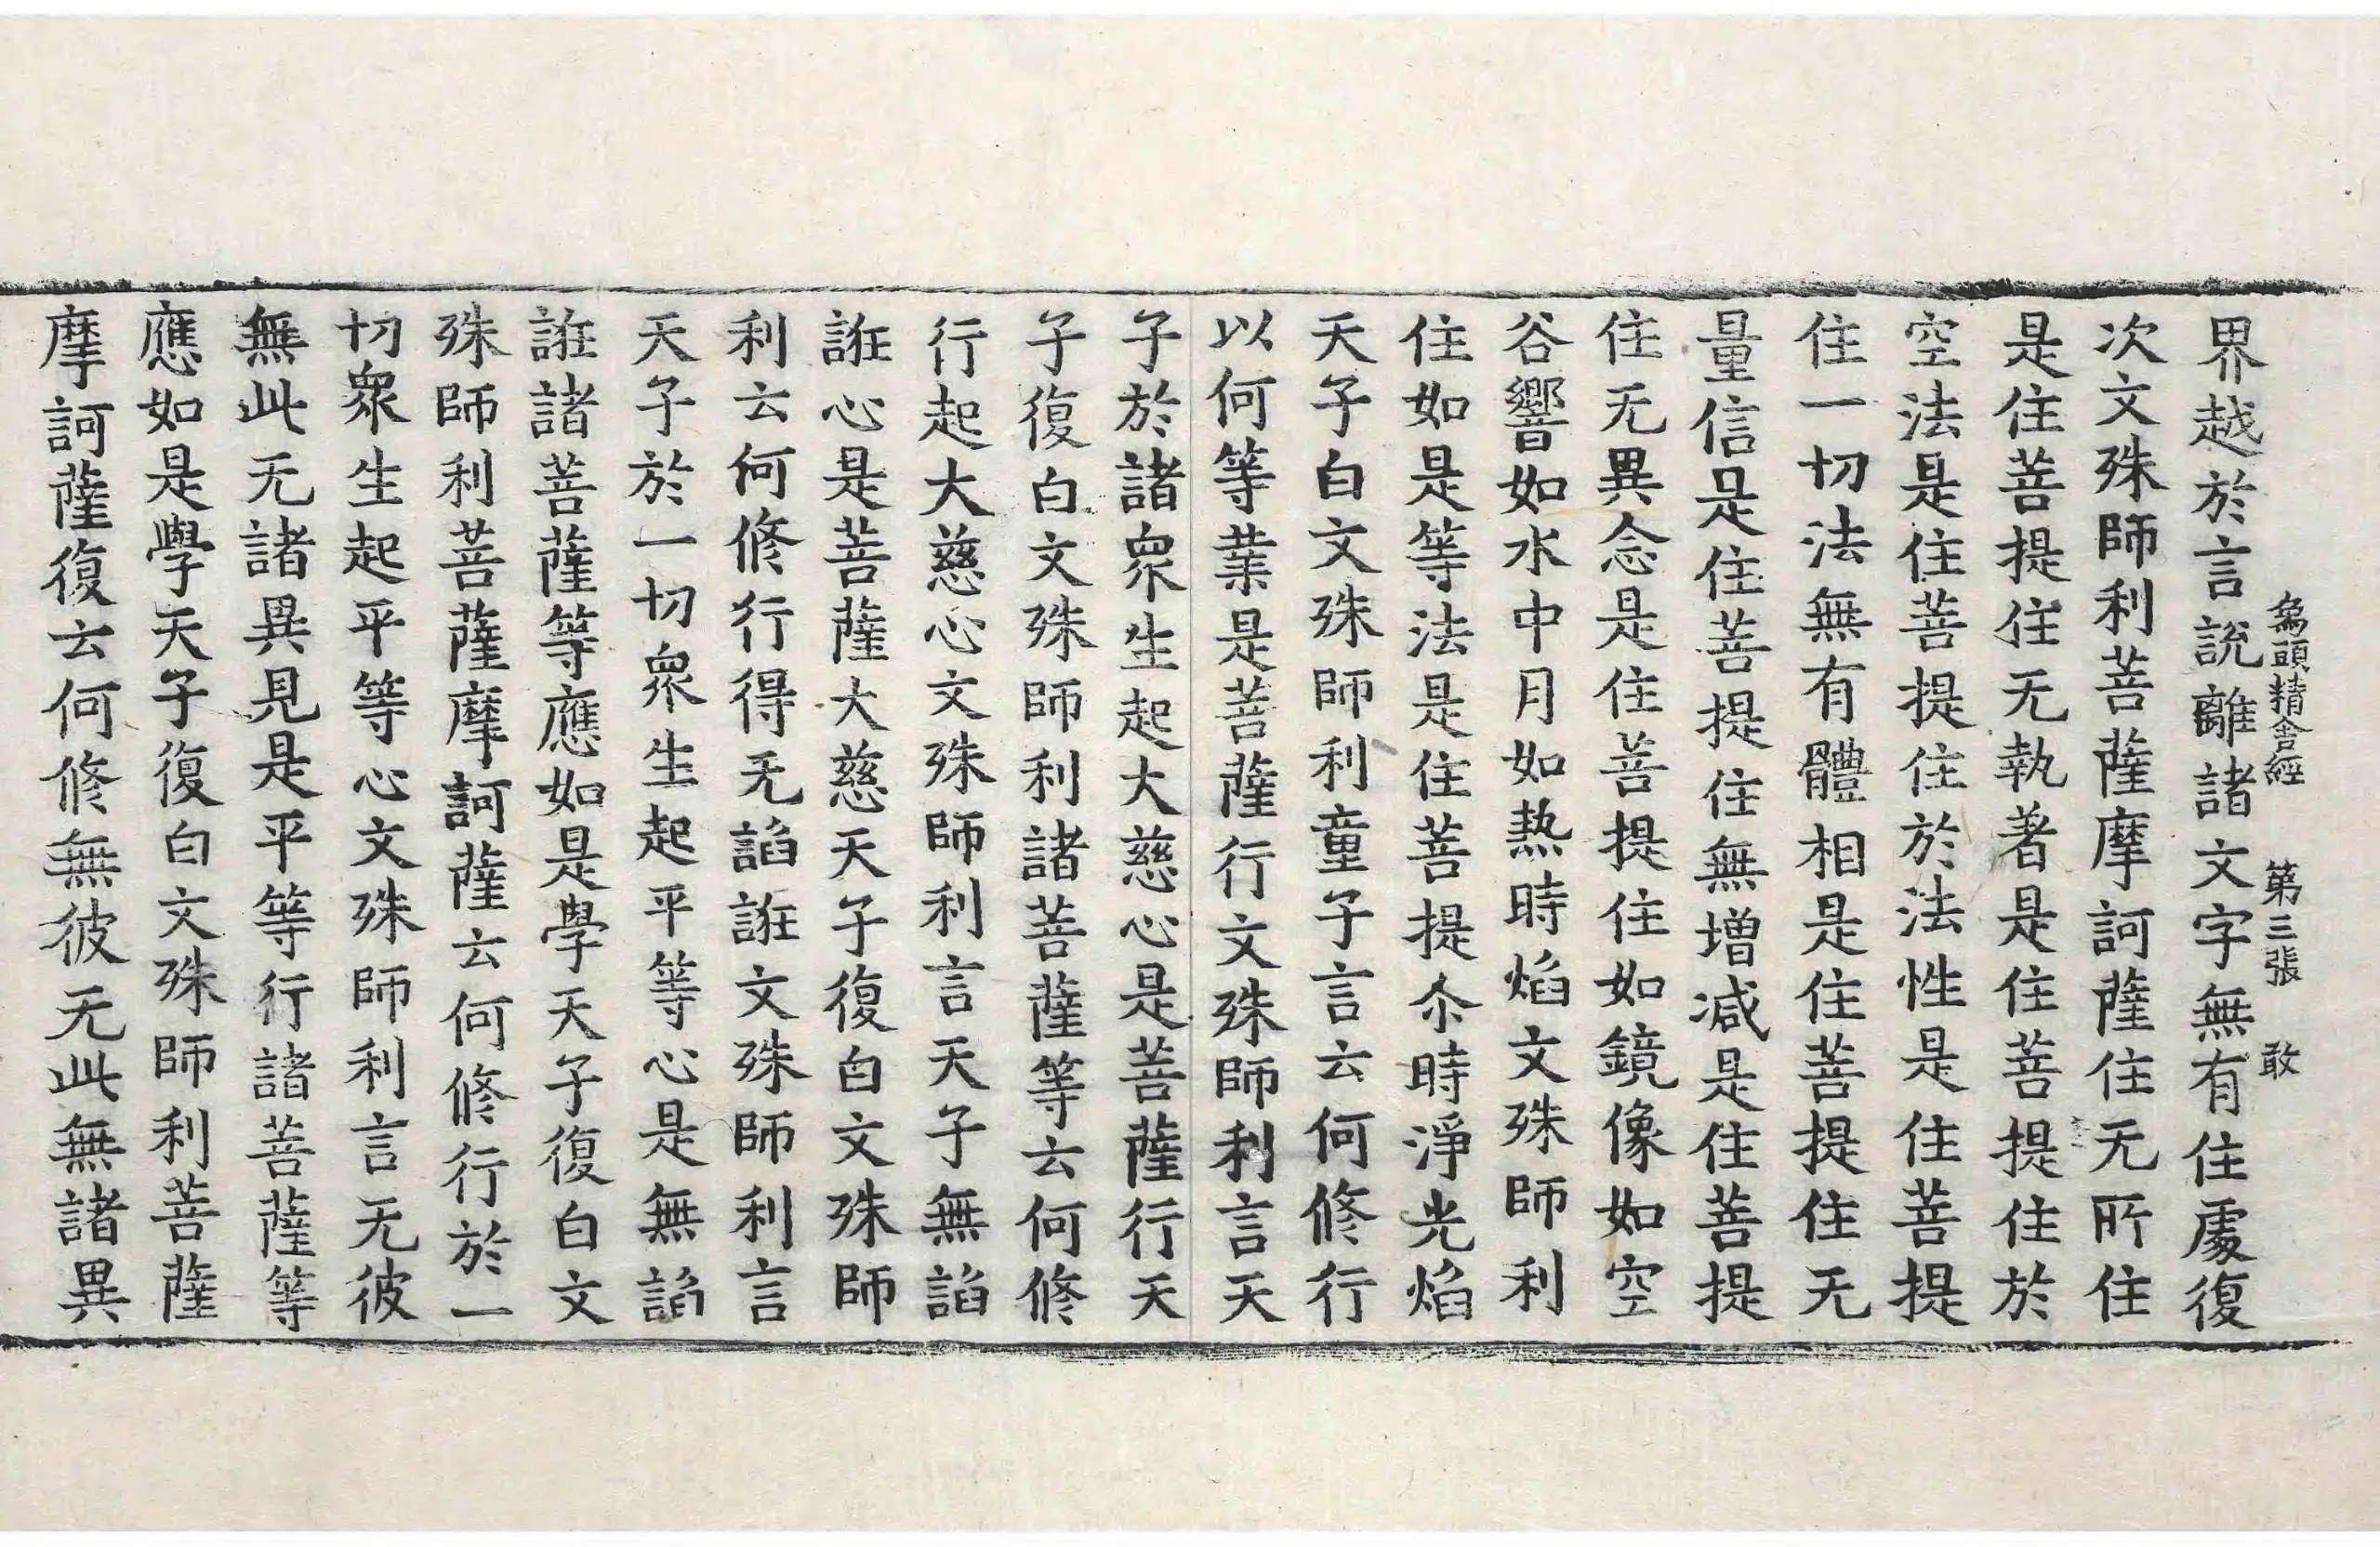 象頭精舍經 第三張 敢
界越於言說離諸文字無有住處復
次文殊師利菩薩摩訶薩住无所住
是住菩提住无執著是住菩提住於
空法是住菩提住於法性是住菩提
住一切法無有體相是住菩提住无
量信是住菩提住無增減是住菩提
住无異念是住菩提住如鏡像如空
谷響如水中月如熱時焰文殊師利
住如是等法是住菩提尒時淨光焰
天子白文殊師利童子言云何修行
以何等業是菩薩行文殊師利言天
子於諸衆生起大慈心是菩薩行天
子復白文殊師利諸菩薩等云何修
行起大慈心文殊師利言天子無諂
誑心是菩薩大慈天子復白文殊師
利云何修行得无諂誑文殊師利言
天子於一切衆生起平等心是無諂
誑諸菩薩等應如是學天子復白文
殊師利菩薩摩訶薩云何修行於一
切衆生起平等心文殊師利言无彼
無此无諸異見是平等行諸菩薩等
應如是學天子復白文殊師利菩薩
摩訶薩復云何修無彼无此無諸異